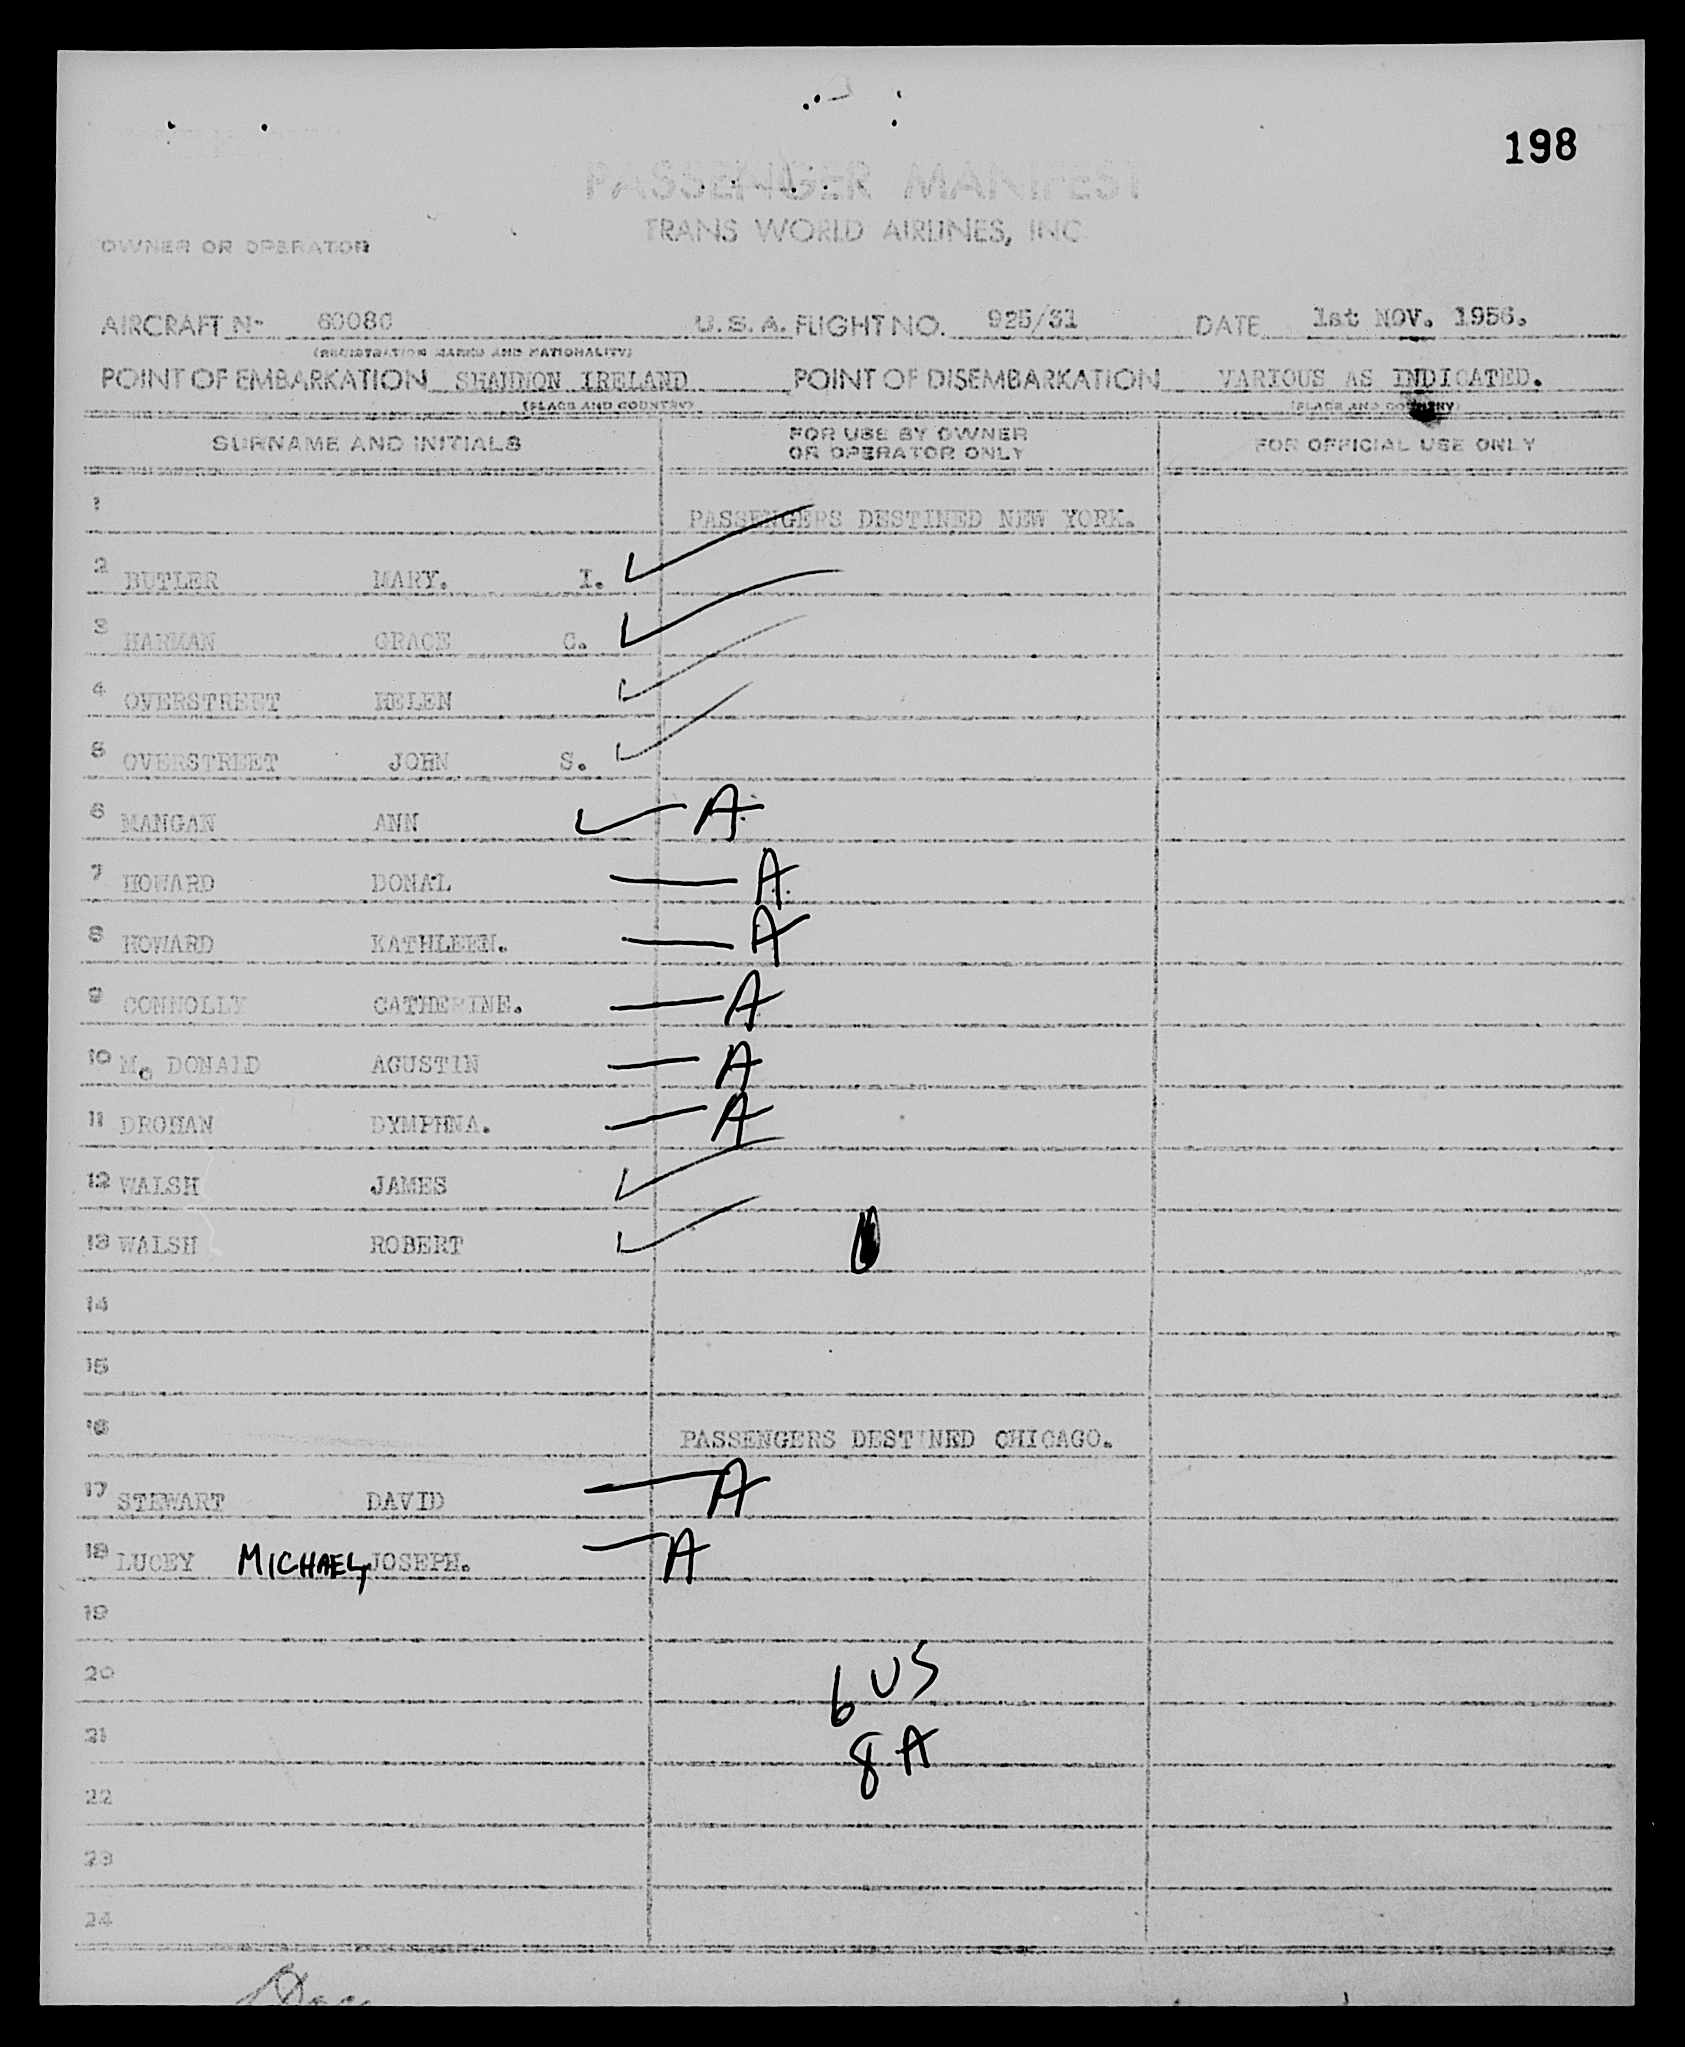 198
PASSENGER MANIFEST
TRANS WORLD AIRLINES, INC
OWNER OR OPERATOR
AIRCRAFT No 60080 U.S.A. FLIGHT NO. 925/31 DATE 1st NOV. 1956.
(REGISTRATION MARKS AND NATIONALITY)
POINT OF EMBARKATION SHANNON IRELAND POINT OF DISEMBARKATION VARIOUS AS INDICATED.
(PLACE AND COUNTRY) (PLACE AND COUNTRY)
SURNAME AND INITIALS FOR USE BY OWNER OR OPERATOR ONLY FOR OFFICIAL USE ONLY
1 PASSENGERS DESTINED NEW YORK.
2 BUTLER MARY. I. ✓
3 HARMAN GRACE C. ✓
4 OVERSTREET HELEN ✓
5 OVERSTREET JOHN S. ✓
6 MANGAN ANN ✓ A
7 HOWARD DONAL — A
8 HOWARD KATHLEEN. — A
9 CONNOLLY CATHERINE. — A
10 Mc DONALD AGUSTIN — A
11 DROHAN DYMPHNA. — A
12 WALSH JAMES ✓
13 WALSH ROBERT ✓
14
15
16 PASSENGERS DESTINED CHICAGO.
17 STEWART DAVID — A
18 LUCEY MICHAEL JOSEPH. — A
19
20 6 US
21 8 A
22
23
24